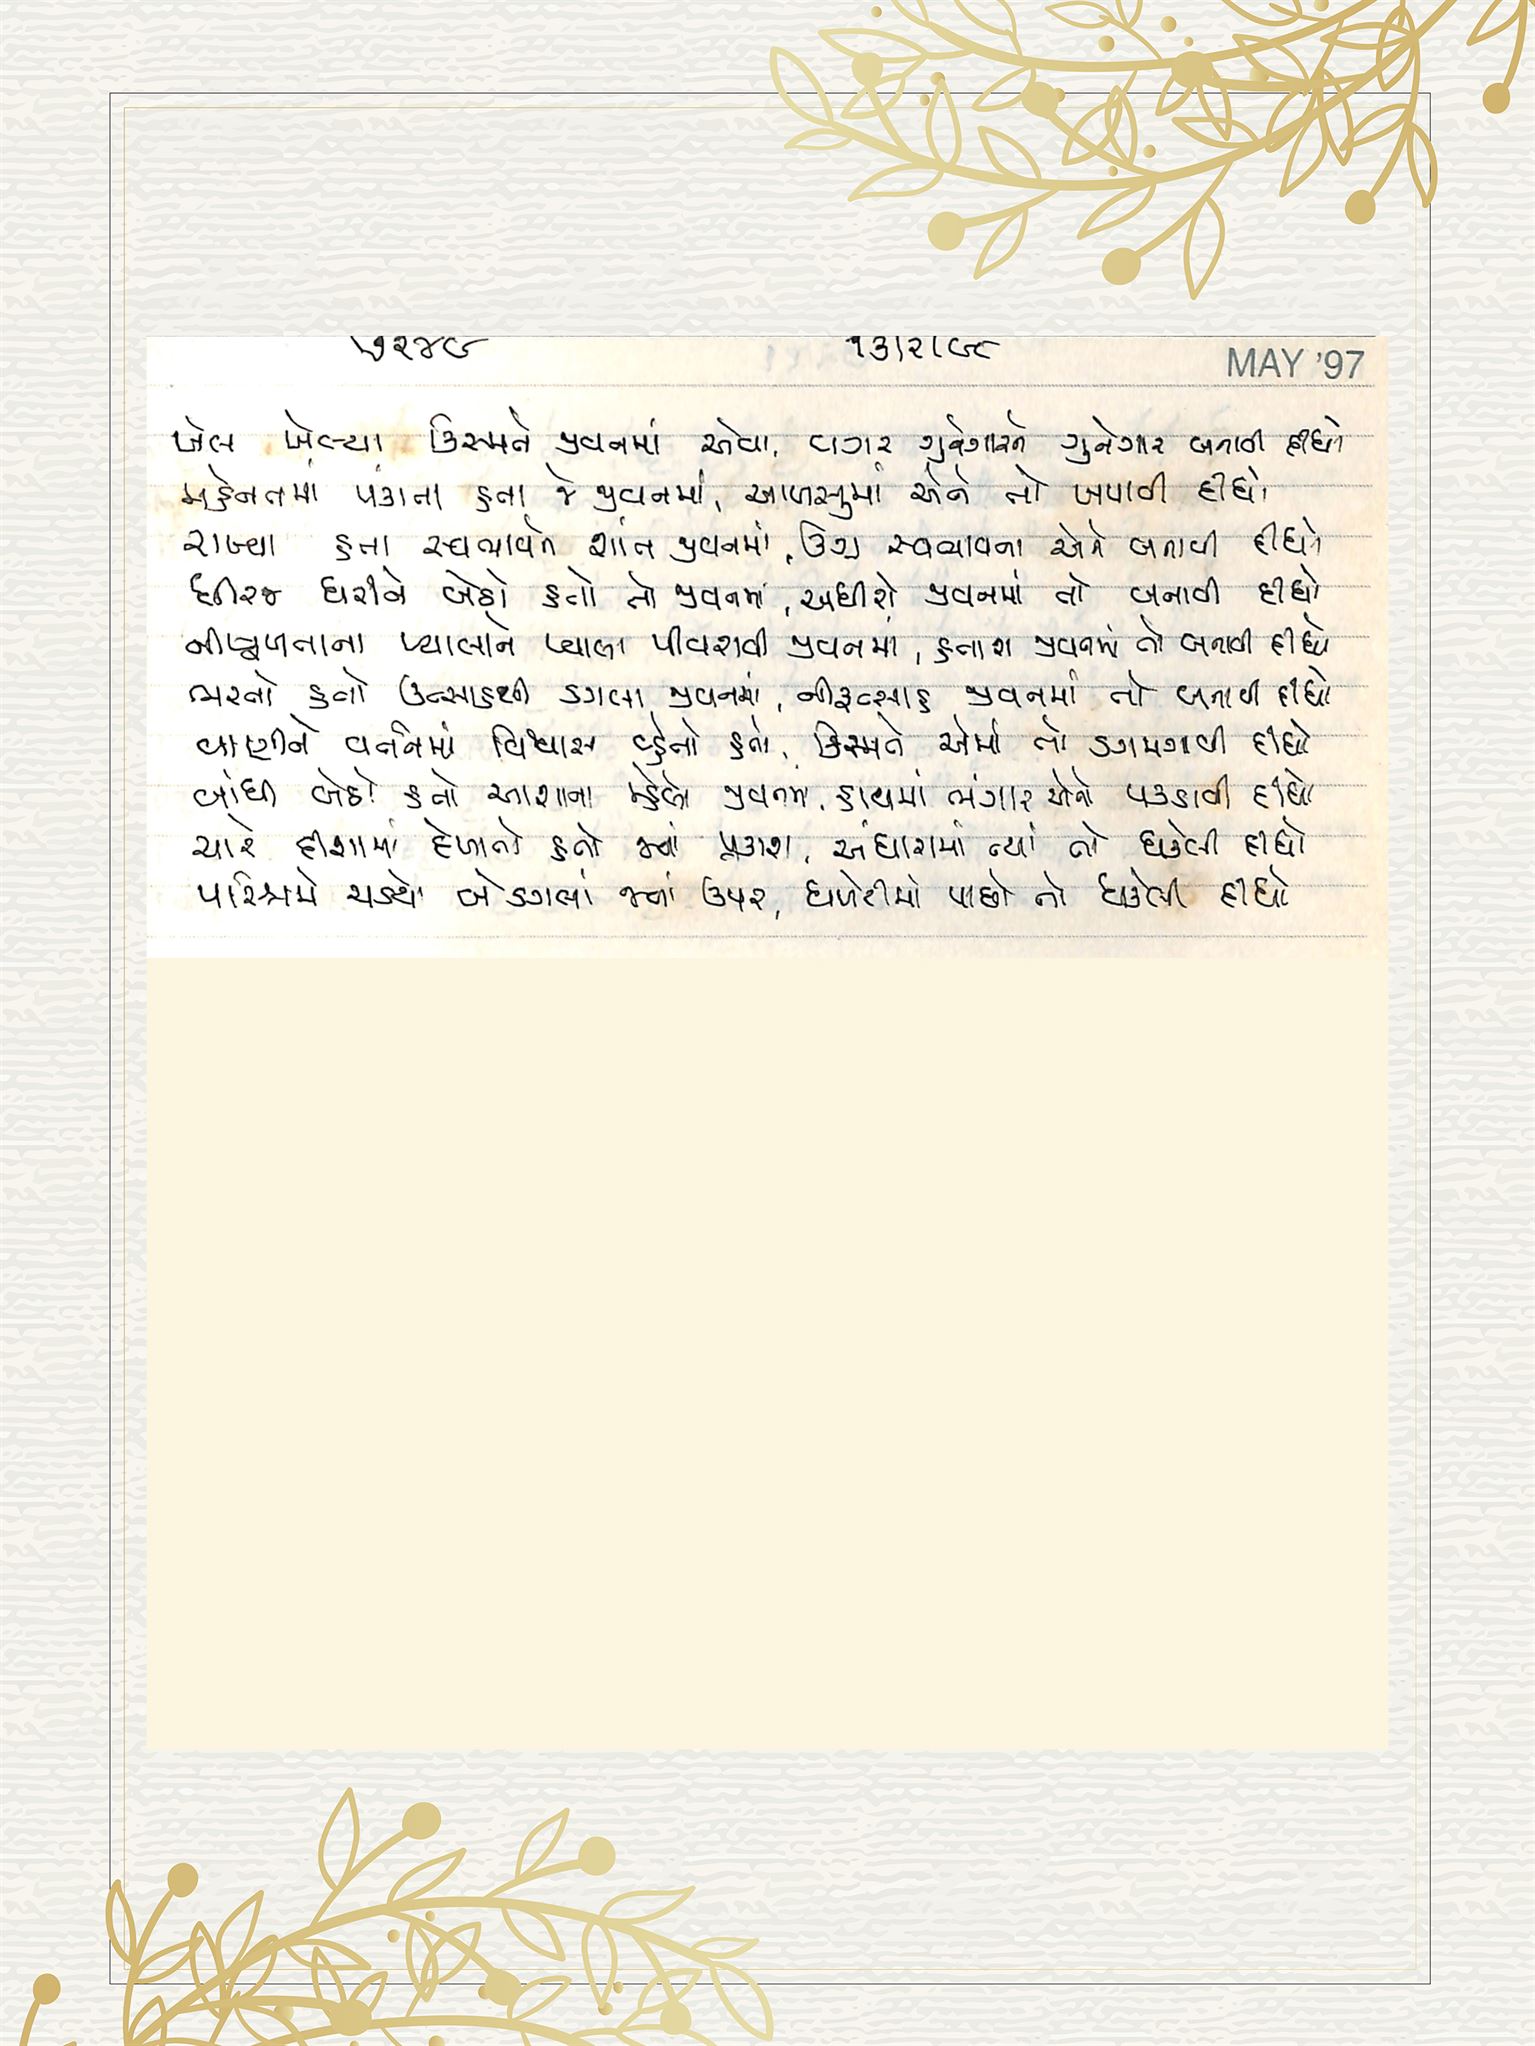 ૫૨૪૯ ૧૩।૨।૯૮ MAY '97
ખેલ ખેલ્યા કિસ્મતે જીવનમાં એવા, વગર ગુનેગારને ગુનેગાર બનાવી દીધો
મહેનતમાં પંકાતા હતા જે જીવનમાં, આળસુમાં એને તો ખપાવી દીધો
રાખ્યા હતા સ્વભાવને શાંત જીવનમાં, ઉગ્ર સ્વભાવના એને બનાવી દીધો
ધીરજ ધરીને બેઠો હતો તો જીવનમાં, અધીરો જીવનમાં તો બનાવી દીધો
નીષ્ફળતાના પ્યાલાને પ્યાલા પીવરાવી જીવનમાં, હતાશ જીવનમાં તો બનાવી દીધો
ભરતો હતો ઉત્સાહથી ડગલા જીવનમાં, નીરૂત્સાહ જીવનમાં તો બનાવી દીધો
વાણીને વર્તનમાં વિશ્વાસ વ્હેતો હતો, કિસ્મતે એમાં તો ડગમગાવી દીધો
બાંધી બેઠો હતો આશાના મ્હેલો જીવનમાં, હાથમાં ભંગાર એનો પકડાવી દીધો
ચારે દીશામાં દેખાતો હતો જ્યાં પ્રકાશ, અંધારામાં ત્યાં તો ધકેલી દીધો
પરિશ્રમે ચડયો બે ડગલાં જ્યાં ઉપર, ખળેટીમાં પાછો તો ધકેલી દીધો